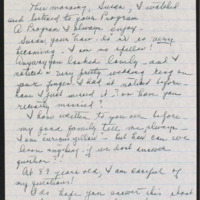 This morning, Susan, I watched
and listened to your Program
A Program I always enjoy.
Susan your hair-do is so very
becoming - I am no speller!
Anyway you looked lovely - and I
noticed a very pretty wedding ring on
your finger! Had I not noticed before
have I just missed it? or have you
recently married?
I have written to you before
my good family tell me, always
I am current, - but how can we
learn anything if we don't answer
question?!
At 89 years old, I am careful of
my questions!
I do hope you answer this short